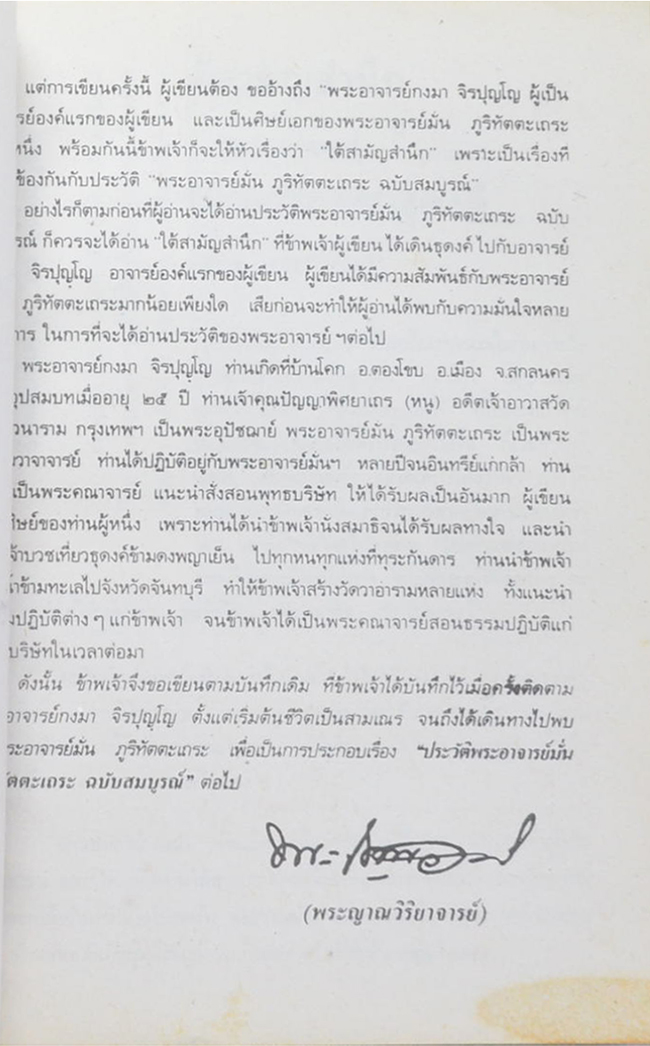 แต่การเขียนครั้งนี้ ผู้เขียนต้อง ขออ้างถึง "พระอาจารย์กงมา จิรปุญโญ ผู้เป็น
รย์องค์แรกของผู้เขียน และเป็นศิษย์เอกของพระอาจารย์มั่น ภูริทัตตะเถระ
หนึ่ง พร้อมกันนี้ข้าพเจ้าก็จะให้หัวเรื่องว่า "ใต้สามัญสำนึก" เพราะเป็นเรื่องที่
ข้องกันกับประวัติ "พระอาจารย์มั่น ภูริทัตตะเถระ ฉบับสมบูรณ์"
อย่างไรก็ตามก่อนที่ผู้อ่านจะได้อ่านประวัติพระอาจารย์มั่น ภูริทัตตะเถระ ฉบับ
รณ์ ก็ควรจะได้อ่าน "ใต้สามัญสำนึก" ที่ข้าพเจ้าผู้เขียน ได้เดินธุดงค์ ไปกับอาจารย์
จิรปุญโญ อาจารย์องค์แรกของผู้เขียน ผู้เขียนได้มีความสัมพันธ์กับพระอาจารย์
ภูริทัตตะเถระมากน้อยเพียงใด เสียก่อนจะทำให้ผู้อ่านได้พบกับความมั่นใจหลาย
การ ในการที่จะได้อ่านประวัติของพระอาจารย์ ฯต่อไป
พระอาจารย์กงมา จิรปุญโญ ท่านเกิดที่บ้านโคก อ.ตองโขบ อ.เมือง จ.สกลนคร
อุปสมบทเมื่ออายุ ๒๕ ปี ท่านเจ้าคุณปัญญาพิศยาเถร (หนู) อดีตเจ้าอาวาสวัด
วนาราม กรุงเทพฯ เป็นพระอุปัชฌาย์ พระอาจารย์มั่น ภูริทัตตะเถระ เป็นพระ
วาจาจารย์ ท่านได้ปฏิบัติอยู่กับพระอาจารย์มั่นฯ หลายปีจนอินทรีย์แก่กล้า ท่าน
เป็นพระคณาจารย์ แนะนำสั่งสอนพุทธบริษัท ให้ได้รับผลเป็นอันมาก ผู้เขียน
ศิษย์ของท่านผู้หนึ่ง เพราะท่านได้นำข้าพเจ้านั่งสมาธิจนได้รับผลทางใจ และนำ
จ้าบวชเที่ยวธุดงค์ข้ามดงพญาเย็น ไปทุกหนทุกแห่งที่ทุระกันดาร ท่านนำข้าพเจ้า
ข้ามทะเลไปจังหวัดจันทบุรี ทำให้ข้าพเจ้าสร้างวัดวาอารามหลายแห่ง ทั้งแนะนำ
งปฏิบัติต่าง ๆ แก่ข้าพเจ้า จนข้าพเจ้าได้เป็นพระคณาจารย์สอนธรรมปฏิบัติแก่
บริษัทในเวลาต่อมา
ดังนั้น ข้าพเจ้าจึงขอเขียนตามบันทึกเดิม ที่ข้าพเจ้าได้บันทึกไว้เมื่อครั้งติดตาม
อาจารย์กงมา จิรปุญโญ ตั้งแต่เริ่มต้นชีวิตเป็นสามเณร จนถึงได้เดินทางไปพบ
ระอาจารย์มั่น ภูริทัตตะเถระ เพื่อเป็นการประกอบเรื่อง "ประวัติพระอาจารย์มั่น
ัตตะเถระ ฉบับสมบูรณ์" ต่อไป
(พระญาณวิริยาจารย์)